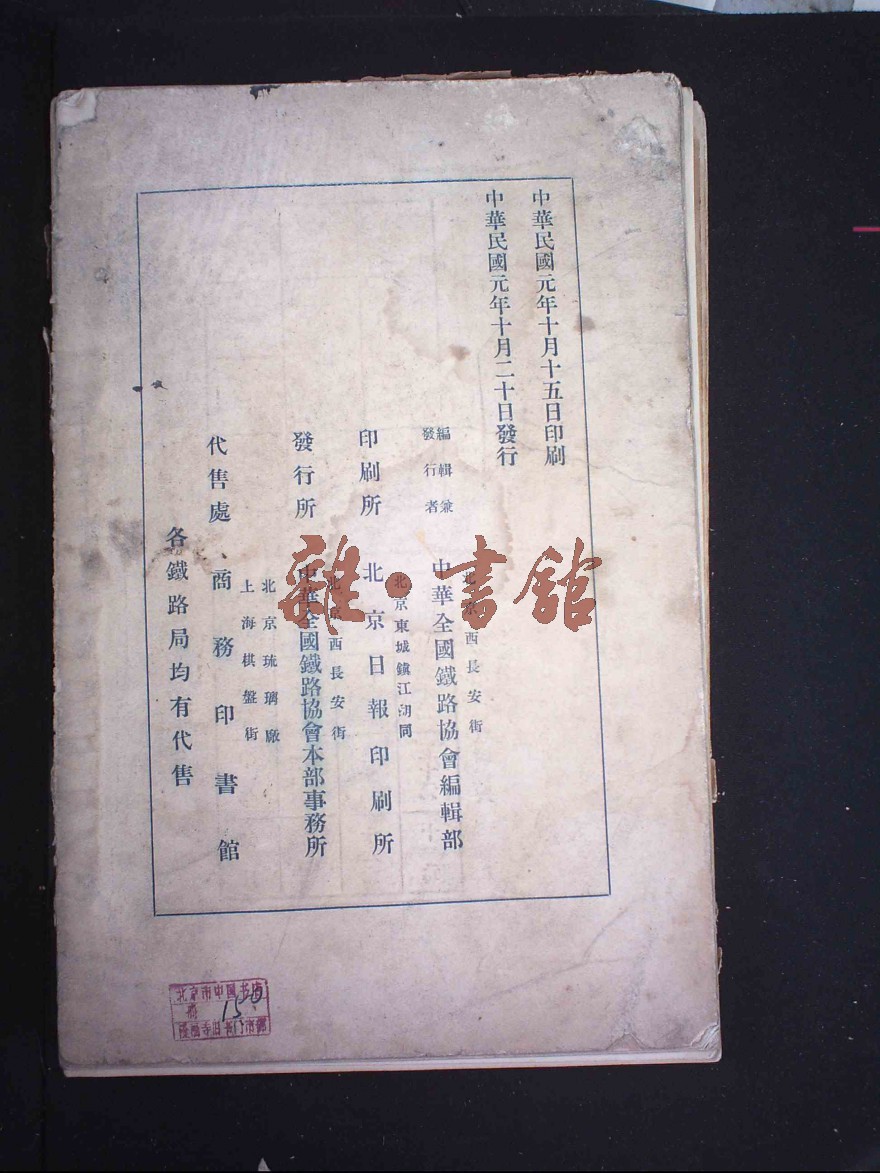 中華民國元年十月十五日印刷
中華民國元年十月二十日發行
編輯兼
發行者
北京西長安街
中華全國鐵路協會編輯部
印刷所
北京東城鎮江胡同
北京日報印刷所
發行所
北京西長安街
中華全國鐵路協會本部事務所
代售處
北京琉璃厰
上海棋盤街
商務印書館
各鐵路局均有代售
雜·書館
北京市中國书店
冊
150